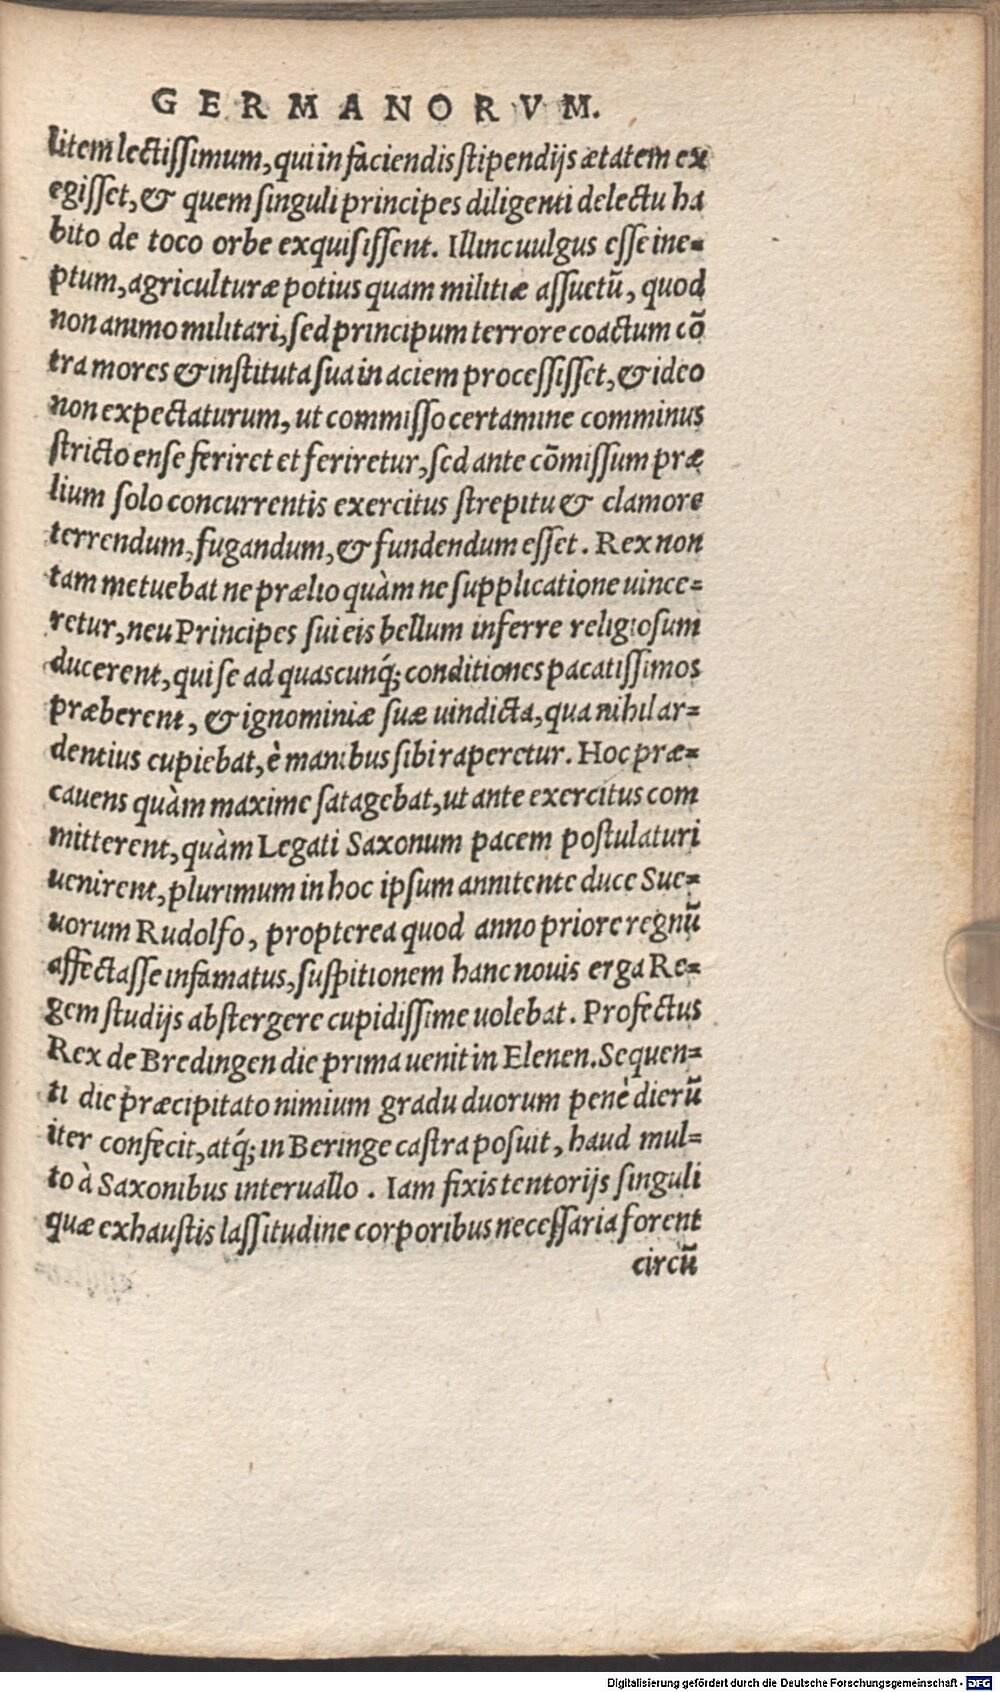 GERMANORVM.
litem lectissimum, qui in faciendis stipendijs ætatem ex
egisset, & quem singuli principes diligenti delectu ha
bito de toco orbe exquisissent. Illinc uulgus esse ine=
ptum, agriculturæ potius quam militiæ assuetū, quod
non animo militari, sed principum terrore coactum cō
tra mores & instituta sua in aciem processisset, & ideo
non expectaturum, ut commisso certamine comminus
stricto ense feriret et feriretur, sed ante cōmissum præ
lium solo concurrentis exercitus strepitu & clamore
terrendum, fugandum, & fundendum esset. Rex non
tam metuebat ne prælio quàm ne supplicatione uince=
retur, neu Principes sui eis bellum inferre religiosum
ducerent, qui se ad quascunq́; conditiones pacatissimos
præberent, & ignominiæ suæ uindicta, qua nihil ar=
dentius cupiebat, è manibus sibi raperetur. Hoc præ=
cauens quàm maxime satagebat, ut ante exercitus com
mitterent, quàm Legati Saxonum pacem postulaturi
uenirent, plurimum in hoc ipsum annitente duce Sue=
uorum Rudolfo, propterea quod anno priore regnū
affectasse infamatus, suspitionem hanc nouis erga Re=
gem studijs abstergere cupidissime uolebat. Profectus
Rex de Bredingen die prima uenit in Elenen. Sequen=
ti die præcipitato nimium gradu duorum penè dierū
iter confecit, atq́; in Beringe castra posuit, haud mul=
to à Saxonibus interuallo. Iam fixis tentorijs singuli
quæ exhaustis lassitudine corporibus necessaria forent
circū
Digitalisierung gefördert durch die Deutsche Forschungsgemeinschaft - DFG